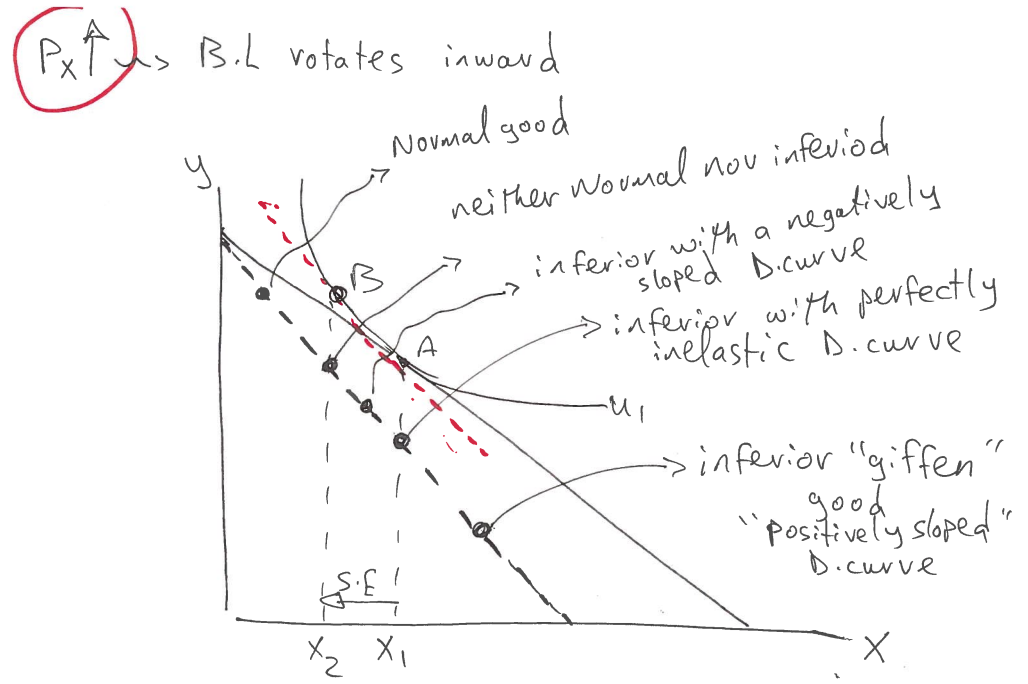 Px↑ → B.L rotates inward
Normal good
neither Normal nor inferiod
inferior with a negatively
sloped D.curve
inferior with perfectly
inelastic D.curve
inferior "giffen"
good
"positively sloped"
D.curve
y
B
A
u1
S.E
X2 X1 X